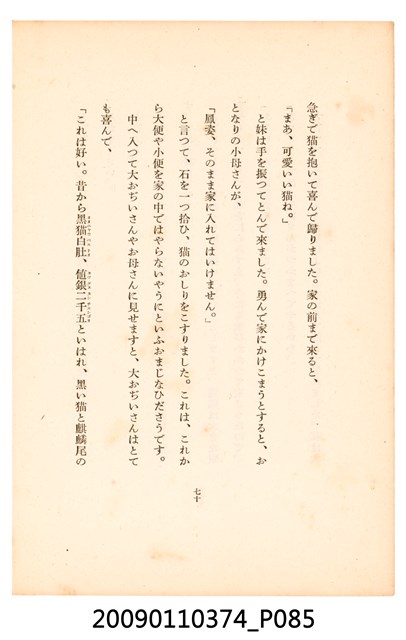 急ぎで猫を抱いて喜んで歸りました。家の前まで來ると、
「まあ、可愛いい猫ね。」
と妹は手を振つてとんで來ました。勇んで家にかけこまうとすると、お
となりの小母さんが、
「鳳姿、そのまま家に入れてはいけません。」
と言つて、石を一つ拾ひ、猫のおしりをこすりました。これは、これか
ら大便や小便を家の中ではやらないやうにといふおまじなひださうです。
中へ入つて大おぢいさんやお母さんに見せますと、大おぢいさんはとて
も喜んで、
「これは好い。昔から黒猫白肚、値銀二千五といはれ、黒い猫と麒麟尾の
七十
20090110374_P085